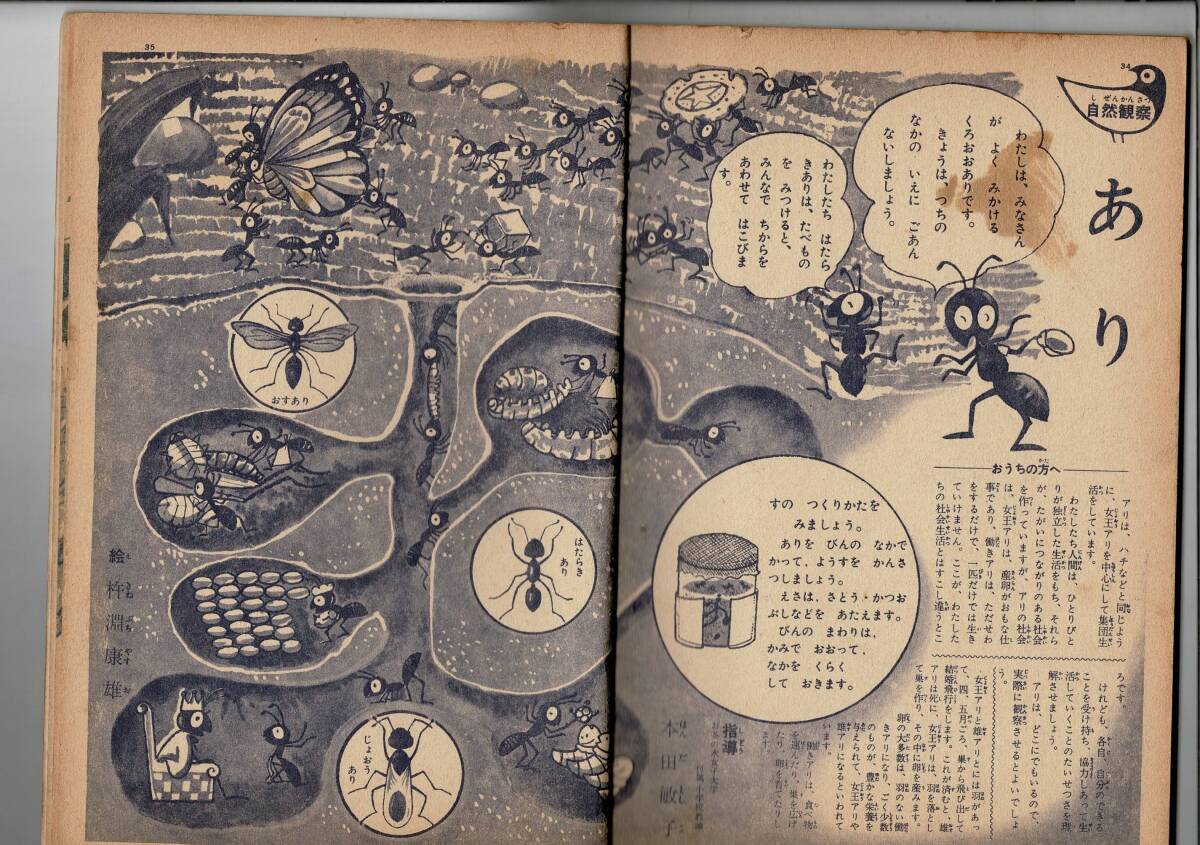 34
しぜんかんさつ
自然観察
あり
わたしは、みなさん
が よく みかける
くろおおありです。
きょうは、つちの
なかの いえに ごあん
ないしましょう。
わたしたち はたら
きありは、たべもの
を みつけると、
みんなで ちからを
あわせて はこびま
す。
おうちの方へ
アリは、ハチなどと同じよう
に、女王アリを中心にして集団生
活をしています。
わたしたち人間は、ひとりびと
りが独立した生活をもち、それら
が、たがいにつながりのある社会
を作っていますが、アリの社会
は、女王アリは、産卵がおもな仕
事であり、働きアリは、ただせわ
をするだけで、一匹だけでは生き
ていけません。ここが、わたした
ちの社会生活とはすこし違うとこ
ろです。
けれども、各自、自分のできる
ことを受け持ち、協力しあって生
活していくことのたいせつさを理
解させましょう。
アリは、どこにでもいるので、
実際に観察させるとよいでしょ
女王アリと雄アリとには羽があっ
て、四、五月ごろ、巣から飛び出して
結婚飛行をします。これが済むと、雄
アリは死に、女王アリは、羽を落とし
て巣を作り、その中に卵を産みます。
卵の大多数は、羽のない働
きアリになり、ごく少数
のものが、豊かな栄養を
与えられて、女王アリや
雄アリになるといわれて
います。
働きアリは、食べ物
を運んだり、巣を広げ
たり、卵を育てたりし
ます。
すの つくりかたを
みましょう。
ありを びんの なかで
かって、ようすを かんさ
つしましょう。
えさは、さとう・かつお
ぶしなどを あたえます。
びんの まわりは、
かみで おおって、
なかを くらく
して おきます。
指導
しどう
本田敏子
ほんだとしこ
35
おすあり
はたらき
あり
じょおう
あり
絵 杵淵康雄
え きねぶちやすお